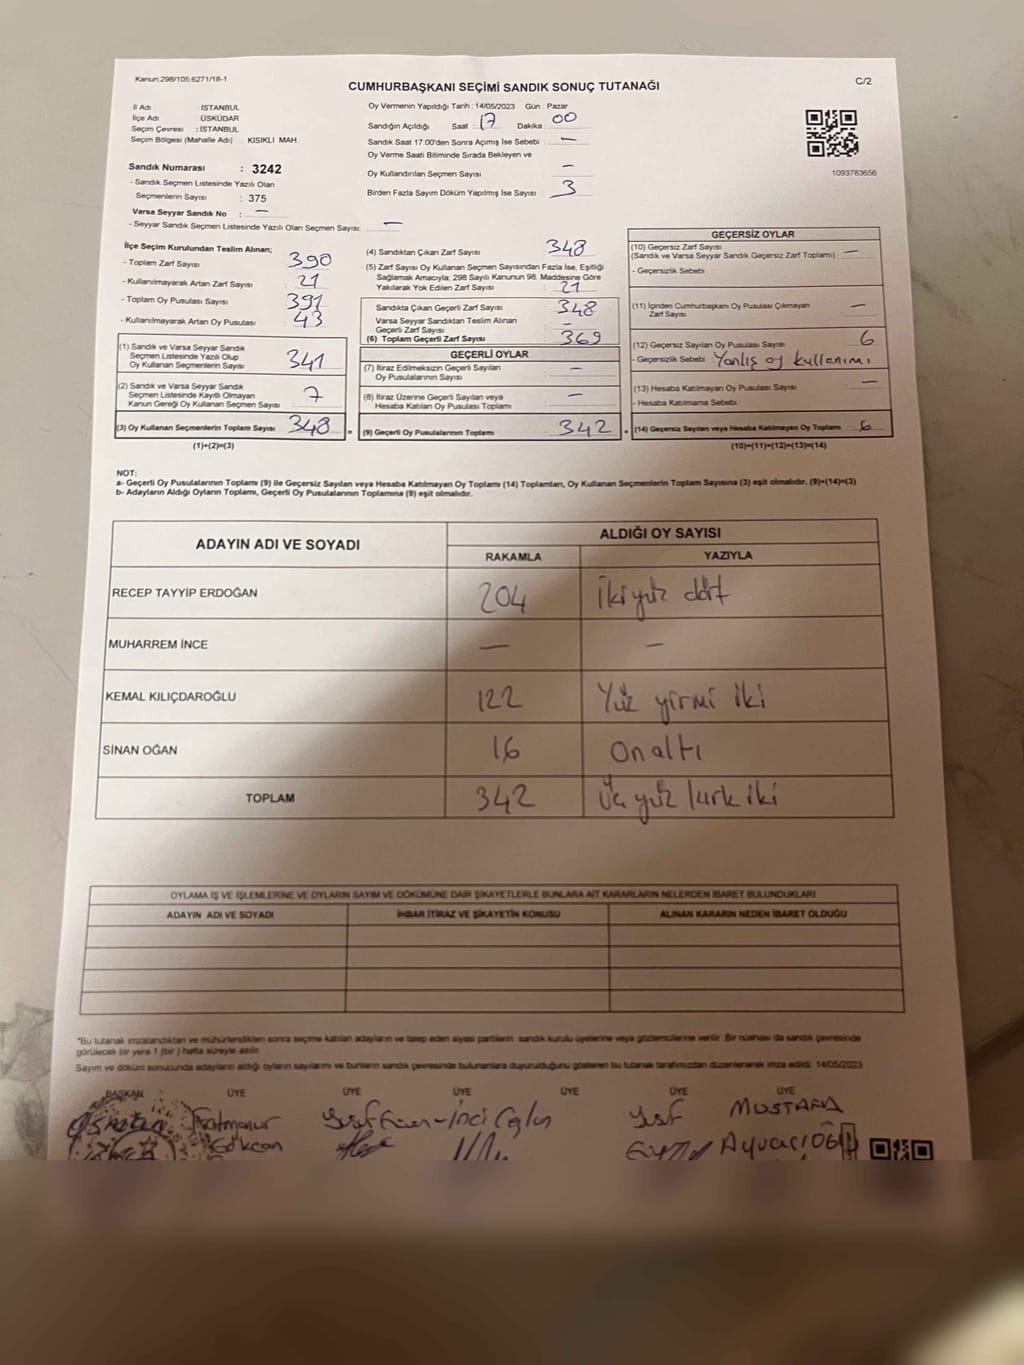 Kanun:298/105;6271/18-1
CUMHURBAŞKANI SEÇİMİ SANDIK SONUÇ TUTANAĞI
C/2
İl Adı : İSTANBUL
İlçe Adı : ÜSKÜDAR
Seçim Çevresi : İSTANBUL
Seçim Bölgesi (Mahalle Adı) : KISIKLI MAH.
Sandık Numarası : 3242
- Sandık Seçmen Listesinde Yazılı Olan
Seçmenlerin Sayısı : 375
Varsa Seyyar Sandık No : —
- Seyyar Sandık Seçmen Listesinde Yazılı Olan Seçmen Sayısı: —
Oy Vermenin Yapıldığı Tarih : 14/05/2023 Gün : Pazar
Sandığın Açıldığı Saat : 17 Dakika : 00
Sandık Saat 17:00'den Sonra Açımış İse Sebebi : —
Oy Verme Saati Bitiminde Sırada Bekleyen ve
Oy Kullandırılan Seçmen Sayısı : —
Birden Fazla Sayım Döküm Yapılmış İse Sayısı : 3
1093783656
İlçe Seçim Kurulundan Teslim Alınan;
- Toplam Zarf Sayısı : 390
- Kullanılmayarak Artan Zarf Sayısı : 21
- Toplam Oy Pusulası Sayısı : 391
- Kullanılmayarak Artan Oy Pusulası : 43
(1) Sandık ve Varsa Seyyar Sandık
Seçmen Listesinde Yazılı Olup
Oy Kullanan Seçmenlerin Sayısı : 341
(2) Sandık ve Varsa Seyyar Sandık
Seçmen Listesinde Kayıtlı Olmayan
Kanun Gereği Oy Kullanan Seçmen Sayısı : 7
(3) Oy Kullanan Seçmenlerin Toplam Sayısı : 348 =
(1)+(2)=(3)
(4) Sandıktan Çıkan Zarf Sayısı : 348
(5) Zarf Sayısı Oy Kullanan Seçmen Sayısından Fazla İse, Eşitliği
Sağlamak Amacıyla; 298 Sayılı Kanunun 98. Maddesine Göre
Yakılarak Yok Edilen Zarf Sayısı : 21
Sandıkta Çıkan Geçerli Zarf Sayısı : 348
Varsa Seyyar Sandıktan Teslim Alınan
Geçerli Zarf Sayısı : —
(6) Toplam Geçerli Zarf Sayısı : 369
GEÇERLİ OYLAR
(7) İtiraz Edilmeksizin Geçerli Sayılan
Oy Pusulalarının Sayısı : —
(8) İtiraz Üzerine Geçerli Sayılan veya
Hesaba Katılan Oy Pusulası Toplamı : —
(9) Geçerli Oy Pusulalarının Toplamı : 342 +
GEÇERSİZ OYLAR
(10) Geçersiz Zarf Sayısı
(Sandık ve Varsa Seyyar Sandık Geçersiz Zarf Toplamı) : —
- Geçersizlik Sebebi :
(11) İçinden Cumhurbaşkanı Oy Pusulası Çıkmayan
Zarf Sayısı : —
(12) Geçersiz Sayılan Oy Pusulası Sayısı : 6
- Geçersizlik Sebebi : Yanlış oy kullanımı
(13) Hesaba Katılmayan Oy Pusulası Sayısı : —
- Hesaba Katılmama Sebebi :
(14) Geçersiz Sayılan veya Hesaba Katılmayan Oy Toplamı : 6
(10)+(11)+(12)+(13)=(14)
NOT:
a- Geçerli Oy Pusulalarının Toplamı (9) ile Geçersiz Sayılan veya Hesaba Katılmayan Oy Toplamı (14) Toplamları, Oy Kullanan Seçmenlerin Toplam Sayısına (3) eşit olmalıdır. (9)+(14)=(3)
b- Adayların Aldığı Oyların Toplamı, Geçerli Oy Pusulalarının Toplamına (9) eşit olmalıdır.
ADAYIN ADI VE SOYADI
ALDIĞI OY SAYISI
RAKAMLA YAZIYLA
RECEP TAYYİP ERDOĞAN 204 İkiyüz dört
MUHARREM İNCE — —
KEMAL KILIÇDAROĞLU 122 Yüz yirmi iki
SİNAN OĞAN 16 On altı
TOPLAM 342 Üç yüz kırk iki
OYLAMA İŞ VE İŞLEMLERİNE VE OYLARIN SAYIM VE DÖKÜMÜNE DAİR ŞİKAYETLERLE BUNLARA AİT KARARLARIN NELERDEN İBARET BULUNDUKLARI
ADAYIN ADI VE SOYADI İHBAR İTİRAZ VE ŞİKAYETİN KONUSU ALINAN KARARIN NEDEN İBARET OLDUĞU
"Bu tutanak imzalandıktan ve mühürlendikten sonra seçime katılan adayların ve talep eden siyasi partilerin sandık kurulu üyelerine veya gözlemcilerine verilir. Bir nüshası da sandık çevresinde
görülecek bir yere 1 (bir) hafta süreyle asılır.
Sayım ve döküm sonucunda adayların aldığı oyların sayılarını ve bunların sandık çevresinde bulunanlara duyurulduğunu gösteren bu tutanak tarafımızdan düzenlenerek imza edildi. 14/05/2023
BAŞKAN ÜYE ÜYE ÜYE ÜYE ÜYE ÜYE
Fatmanur
Gökcan
İnci
MUSTAFA